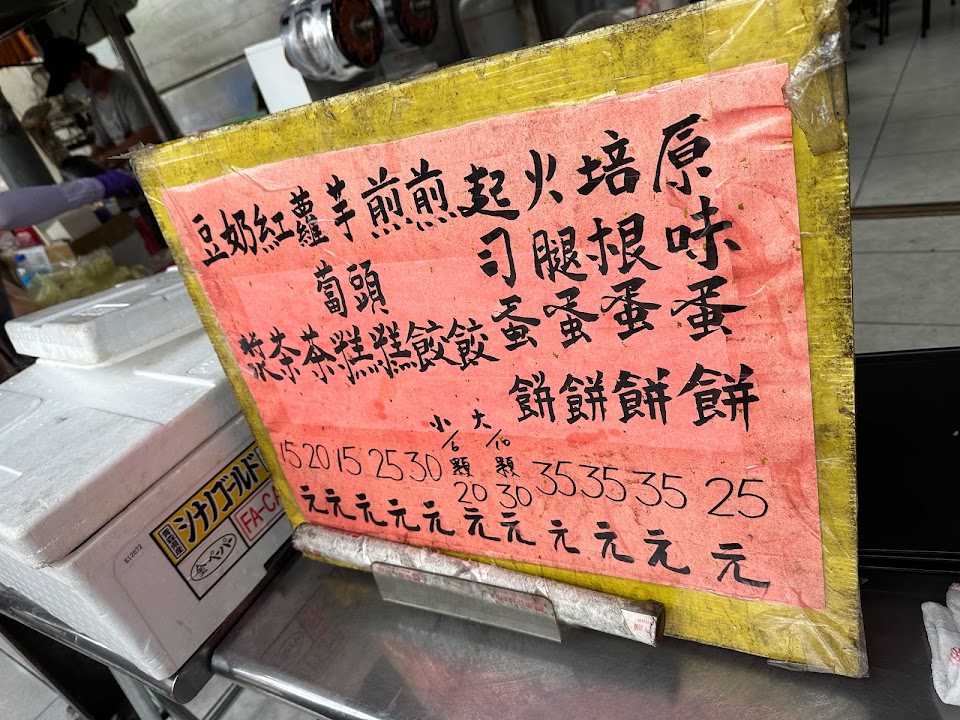 原味蛋餅 25元
培根蛋餅 35元
火腿蛋餅 35元
起司蛋餅 35元
煎餃 大/10顆 30元
煎餃 小/6顆 20元
芋頭糕 30元
蘿蔔糕 25元
紅茶 15元
奶茶 20元
豆漿 15元
シナノゴールド
金ペーパー
FA-CA
K12072